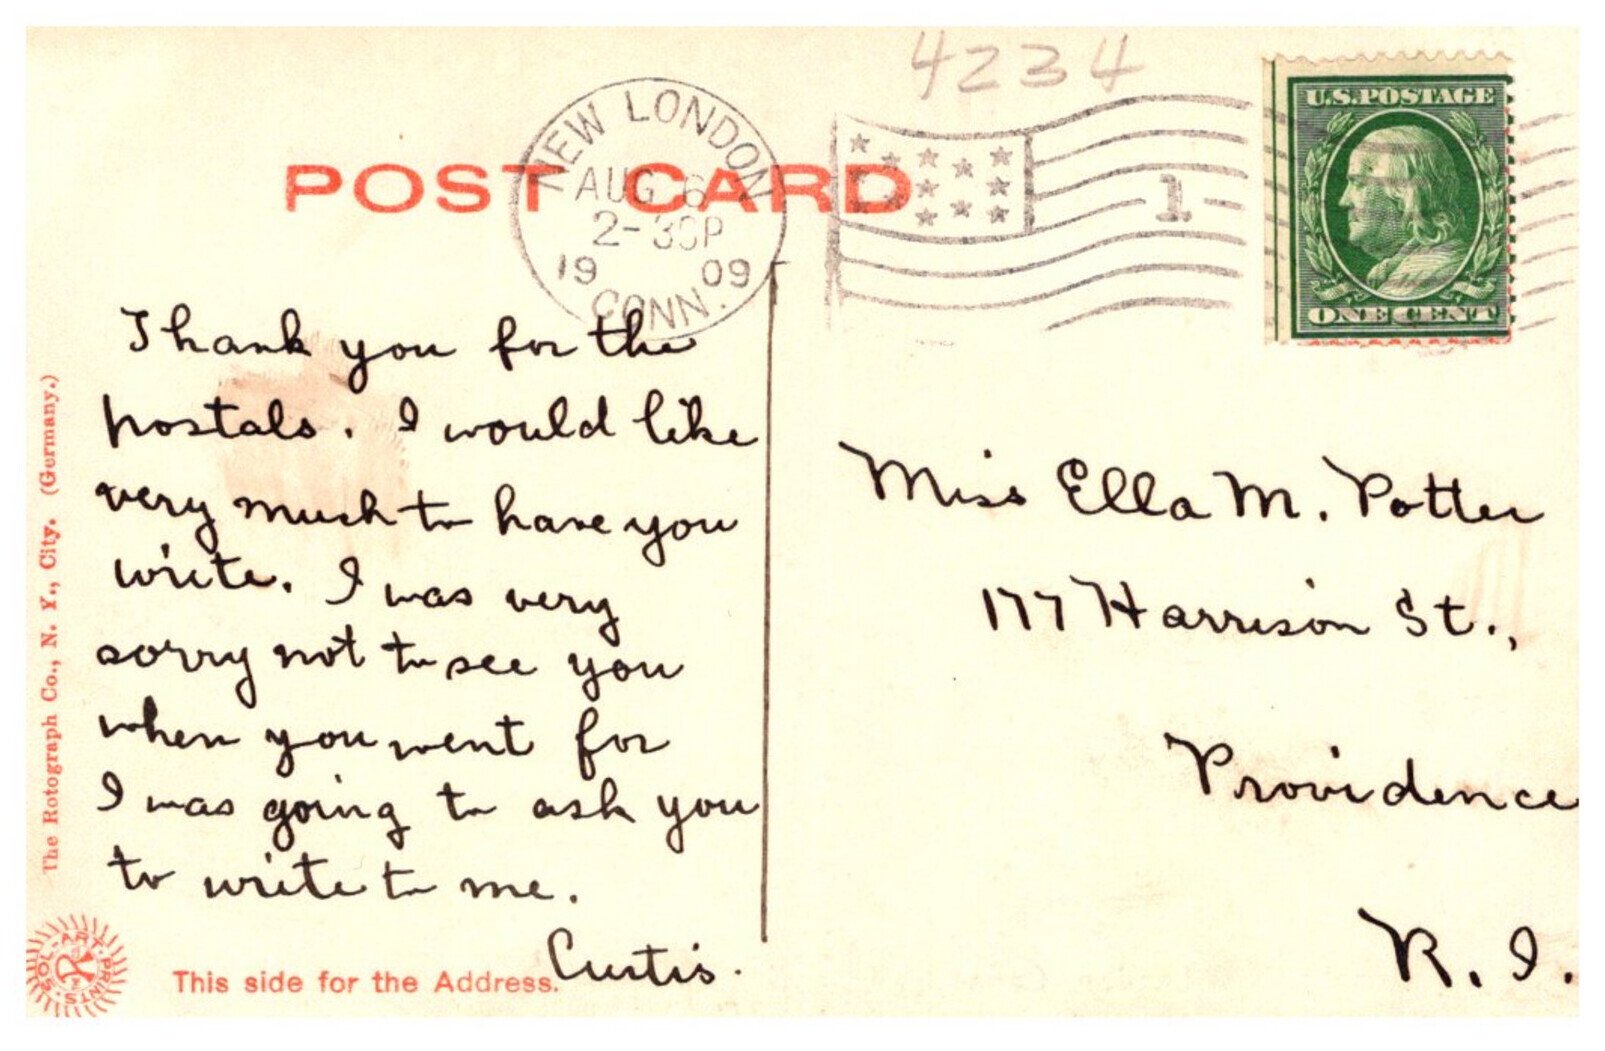 4234
NEW LONDON
AUG 6
2-30P
1909
CONN.
1
U.S. POSTAGE
ONE CENT
POST CARD
Thank you for the
postals. I would like
very much to have you
write. I was very
sorry not to see you
when you went for
I was going to ask you
to write to me.
Curtis.
Miss Ella M. Potter
177 Harrison St.,
Providence
R. I.
The Rotograph Co., N. Y., City. (Germany.)
SOL-ART PRINTS
This side for the Address.